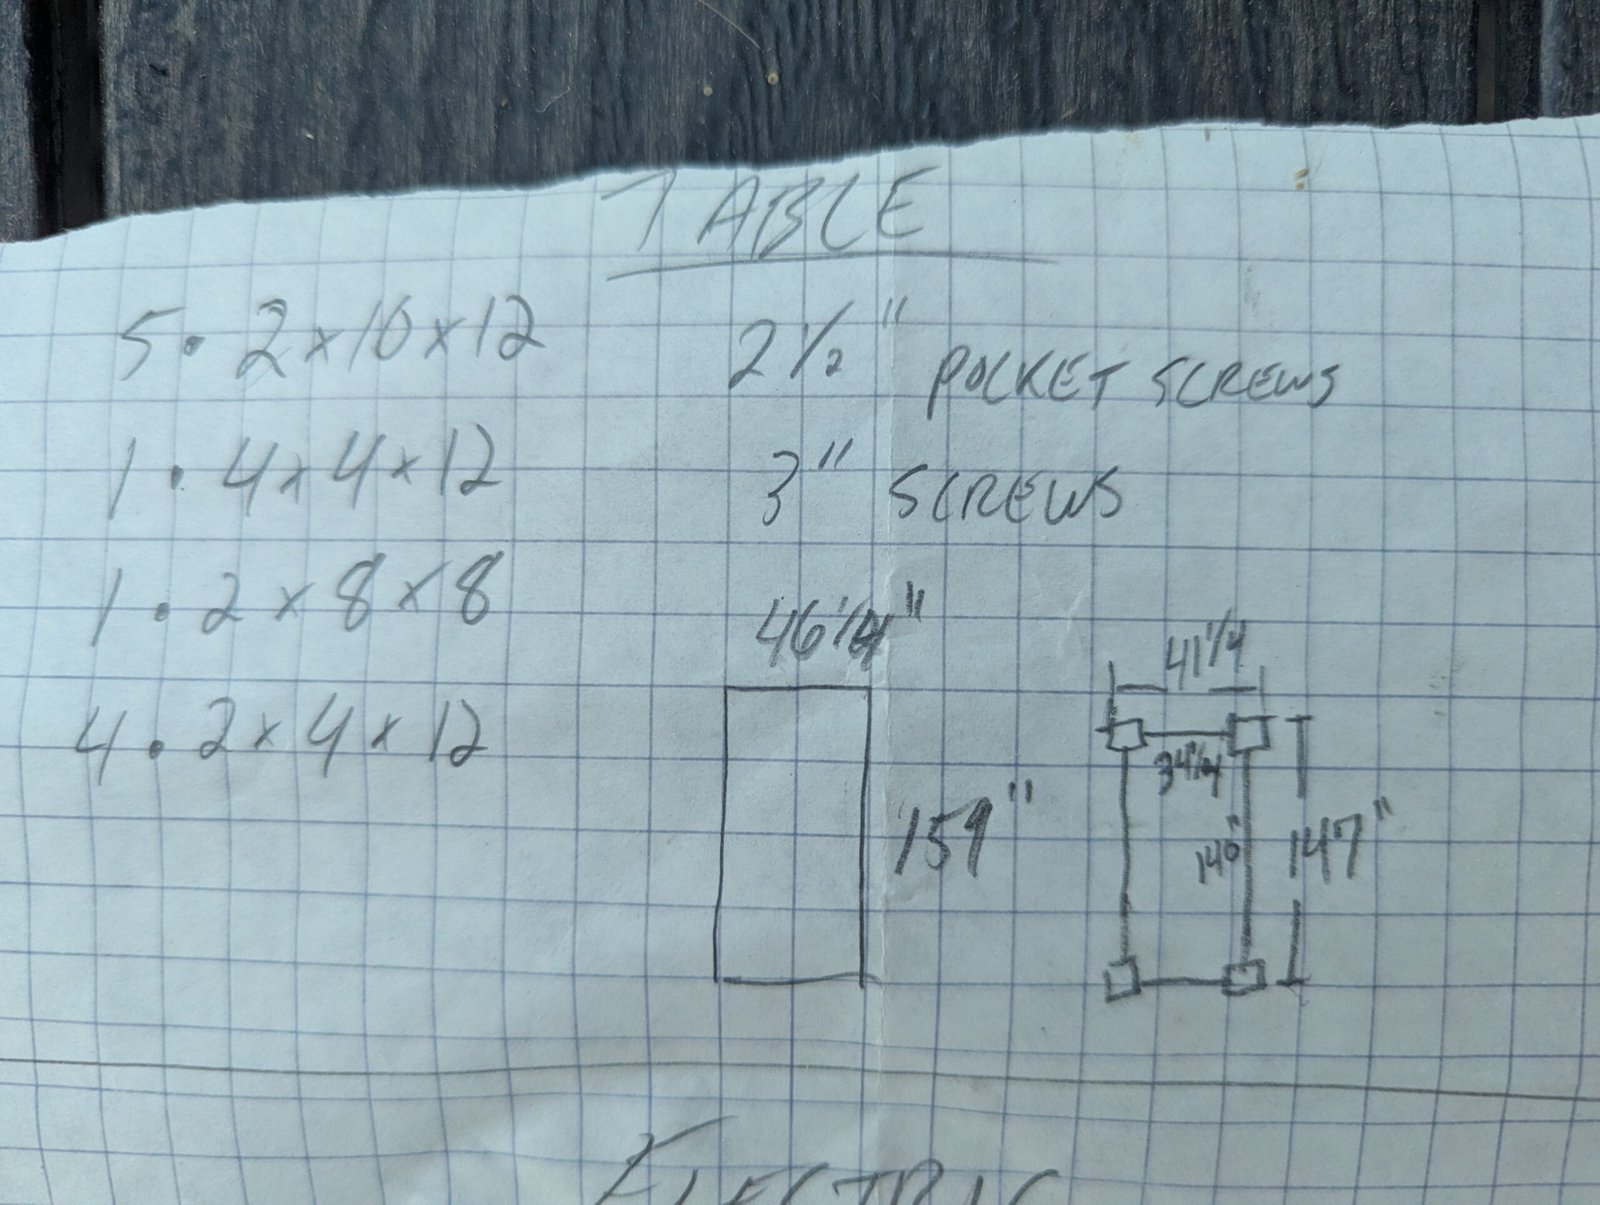 TABLE
5 • 2x10x12
1 • 4x4x12
1 • 2x8x8
4 • 2x4x12
2 1/2" POCKET SCREWS
3" SCREWS
46 1/4"
159"
41 1/4
34 1/4
140"
147"
ELECTRIC